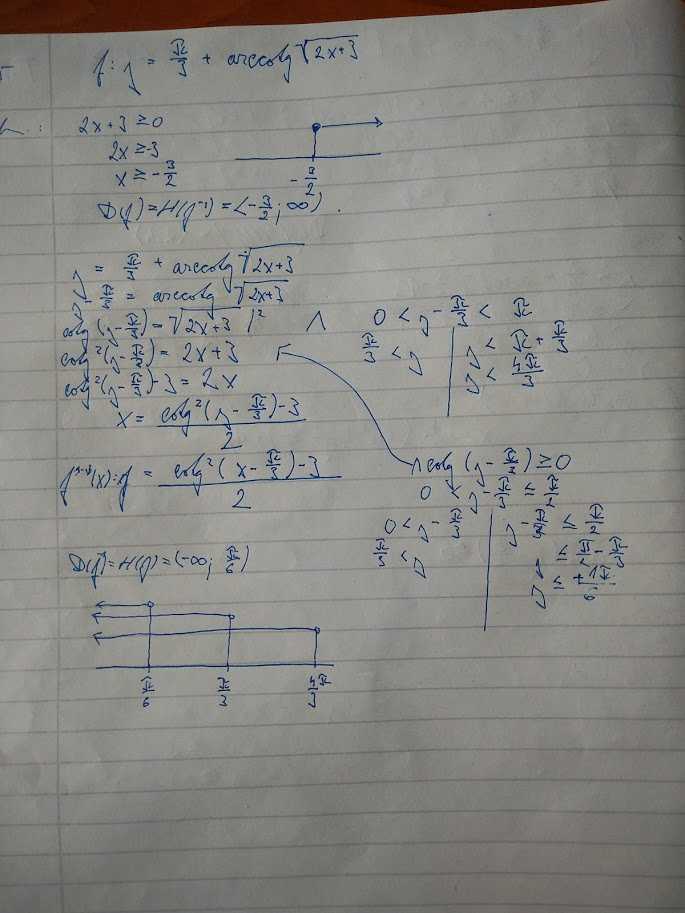 f: y = π/3 + arccotg √(2x+3)
2x+3 ≥ 0
2x ≥ -3
x ≥ -3/2
-3/2
D(f) = H(f⁻¹) = <-3/2; ∞).
y = π/3 + arccotg √(2x+3)
y - π/3 = arccotg √(2x+3)
cotg (y - π/3) = √(2x+3) |² ∧ 0 < y - π/3 < π
cotg² (y - π/3) = 2x+3
cotg² (y - π/3) - 3 = 2x
x = (cotg² (y - π/3) - 3)/2
f⁻¹(x): y = (cotg² (x - π/3) - 3)/2
π/3 < y | y < π + π/3
y < 4π/3
∧ cotg (y - π/3) ≥ 0
0 < y - π/3 ≤ π/2
0 < y - π/3 | y - π/3 ≤ π/2
π/3 < y | y ≤ π/2 - π/3
y ≤ +1π/6
D(f⁻¹) = H(f) = (-∞; π/6)
π/6 π/3 4/3 π